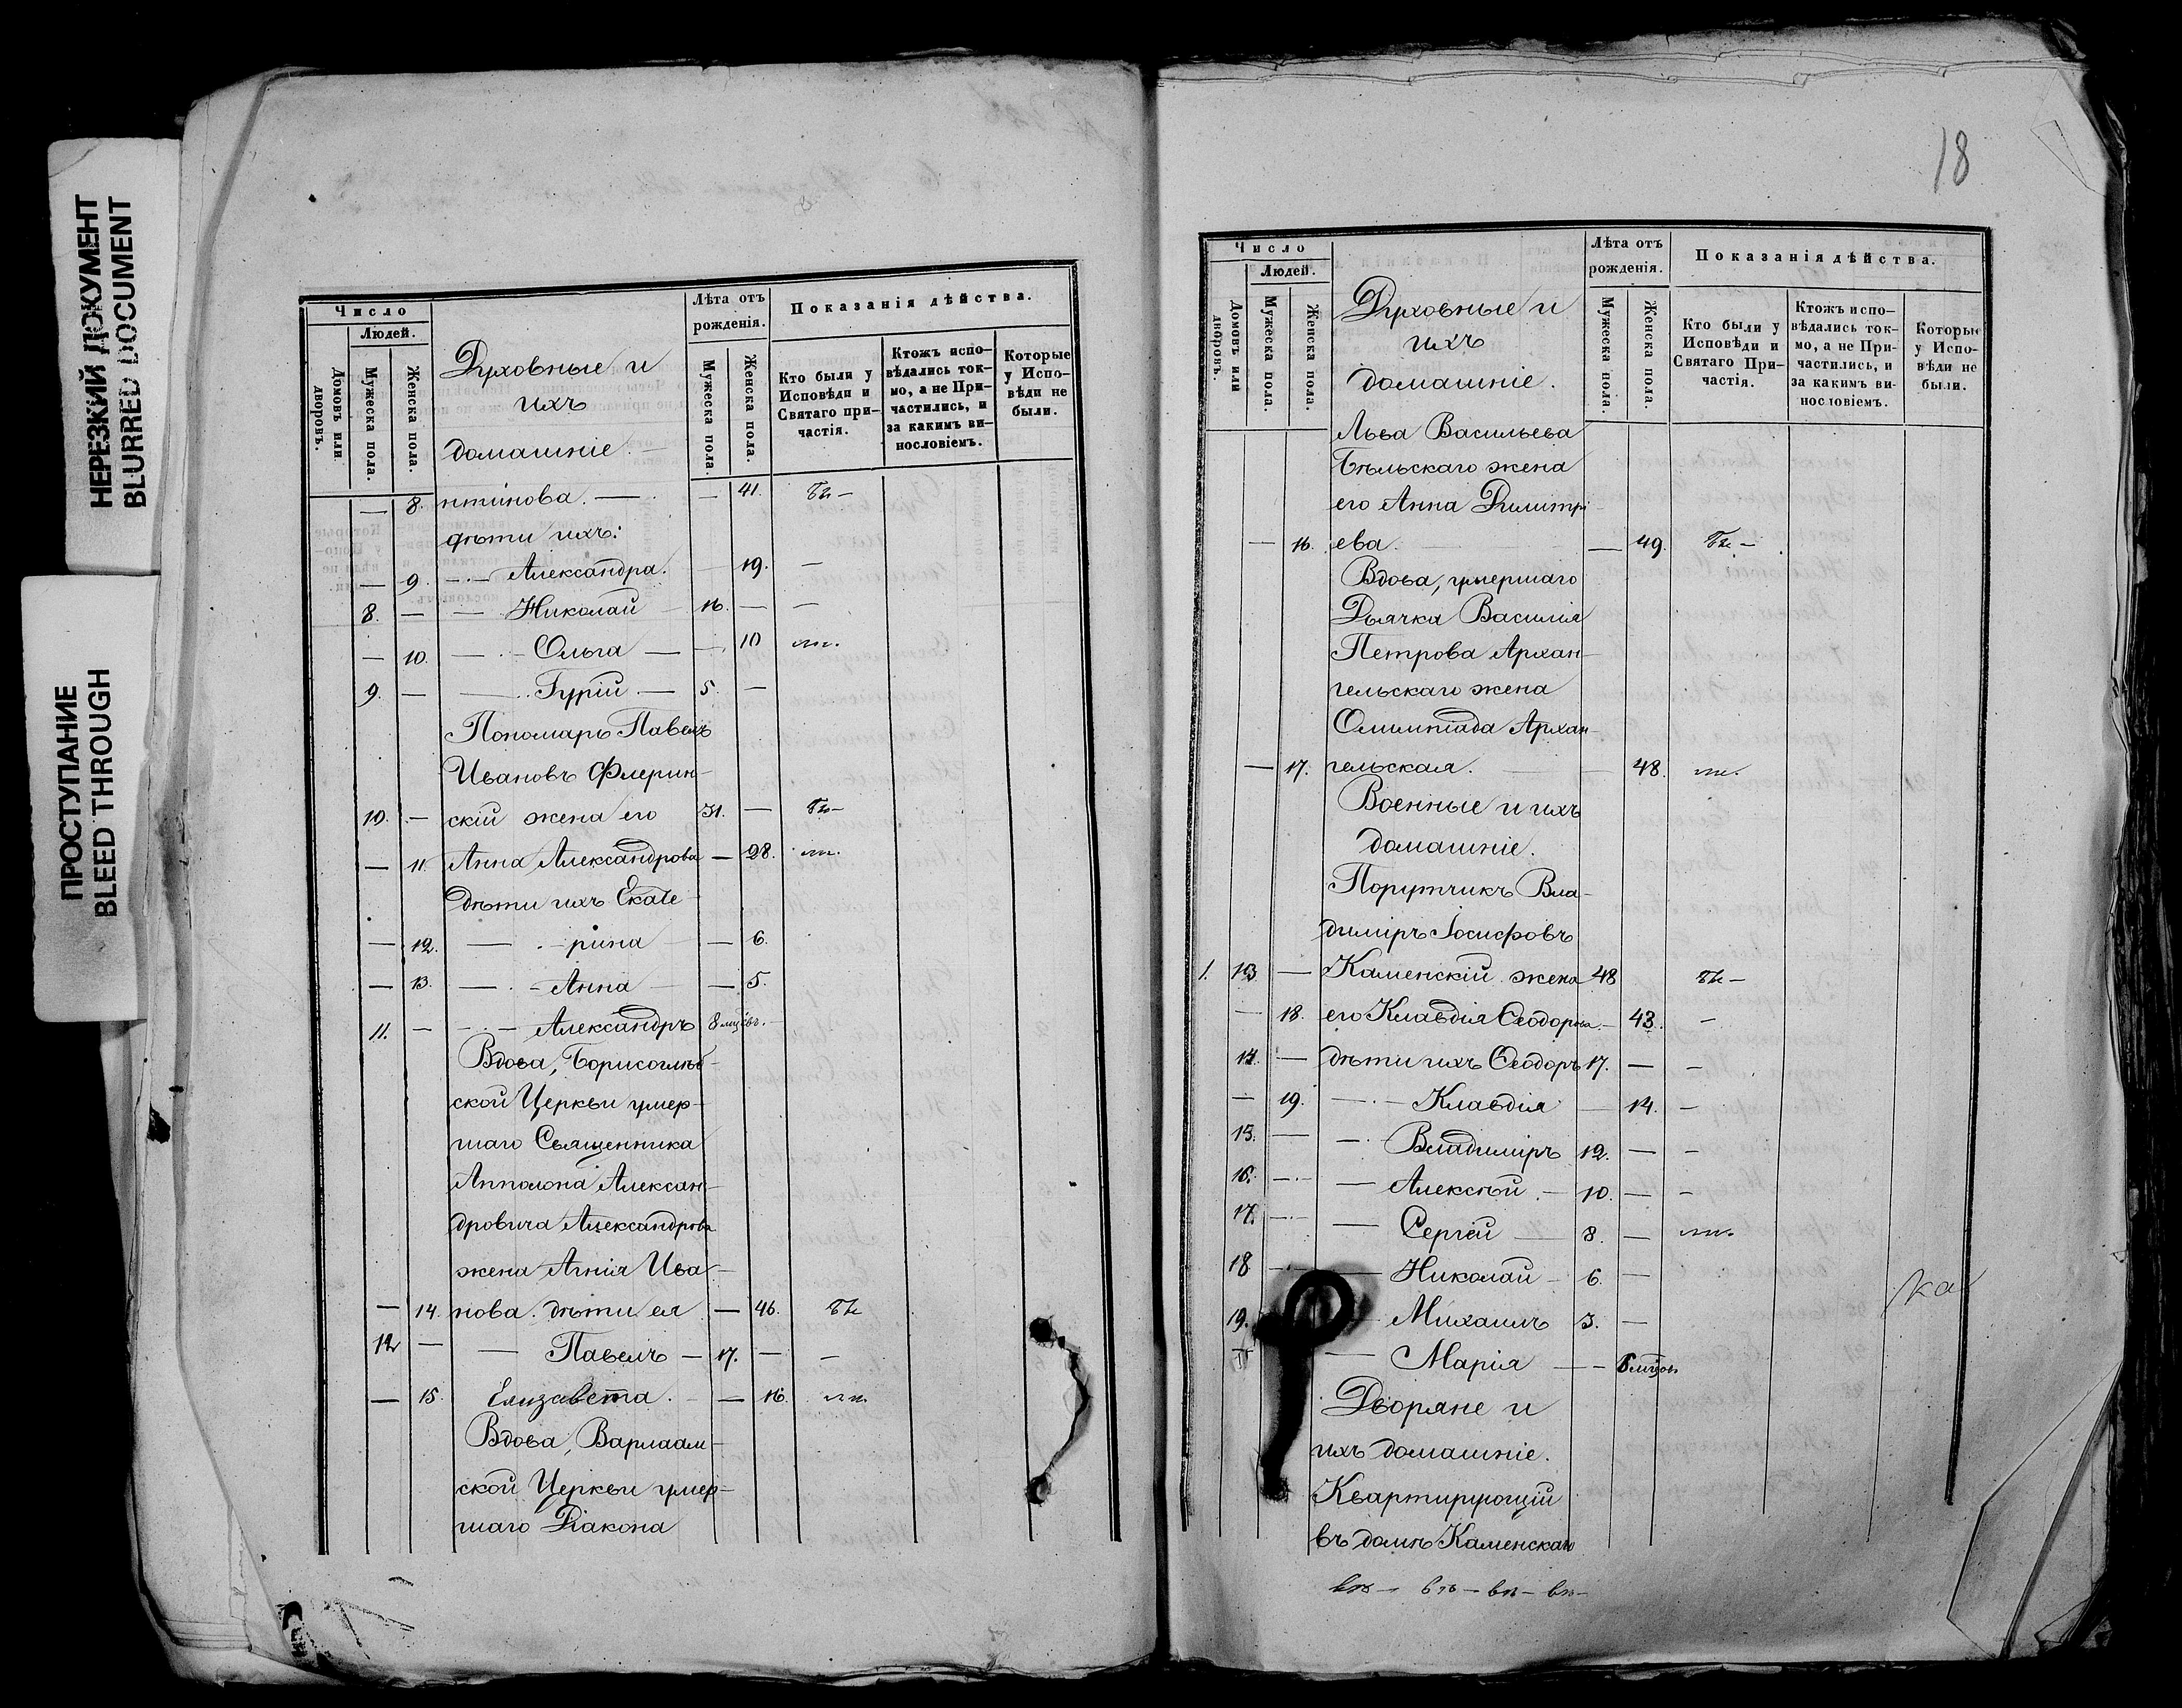 НЕРЕЗКИЙ ДОКУМЕНТ
BLURRED DOCUMENT
ПРОСТУПАНИЕ
BLEED THROUGH
Число
Людей.
Домовъ или дворовъ.
Мужеска пола.
Женска пола.
Духовные и
ихъ
домашніе.
Лѣта отъ рожденія.
Мужеска пола.
Женска пола.
Показанія дѣйства.
Кто были у Исповѣди и Святаго при-частія.
Ктожъ испо-вѣдались ток-мо, а не При-частились, и за какимъ ви-нословіемъ.
Которые у Испо-вѣди не были.
— 8. нтинова. — — 41.
дѣти ихъ:
— 9. — Александра. 19. —
8. — — Николай 16. — —
— 10. — Ольга — — 10
9. — — Гурій — 5. —
Пономарь Павелъ
Ивановъ Флерин-
10. — скій жена его 31. —
— 11. Анна Александрова — 28.
Дѣти ихъ Екате-
— 12. — рина — 6.
— 13. — Анна — 5.
11. — — Александръ 8 мцевъ. —
Вдова, Борисоглѣб-
ской Церкви умер-
шаго Священника
Апполона Алексан-
дровича Александрова
жена Агнія Ива-
— 14. нова. дѣти ея — 46.
12 — — Павелъ — 17. — —
— 15. Елизавета. — 16.
Вдова, Варлаам-
ской Церкви умер-
шаго Діакона
18
Число
Людей.
Домовъ или дворовъ.
Мужеска пола.
Женска пола.
Духовные и
ихъ
домашніе.
Лѣта отъ рожденія.
Мужеска пола.
Женска пола.
Показанія дѣйства.
Кто были у Исповѣди и Святаго При-частія.
Ктожъ испо-вѣдались ток-мо, а не При-частились, и за какимъ ви-нословіемъ.
Которые у Испо-вѣди не были.
Льва Васильева
Бѣльскаго жена
его Анна Димитрі-
— 16. ева. — 49.
Вдова, умершаго
Дьячка Василія
Петрова Архан-
гельскаго жена
Олимпіада Архан-
— 17. гельская. 48.
Военные и ихъ
домашніе.
Поручикъ Вла-
диміръ Іосифовъ
1. 13 — Каменскій жена 48
— 18. его Клавдія Ѳеодорова — 43. —
14. — дѣти ихъ Ѳеодоръ 17. — —
— 19. — Клавдія — 14. —
15. — — Владиміръ 12. — —
16. — — Алексѣй. — 10. — —
17. — — Сергѣй — 8. —
18 — — Николай — 6. —
19. Михаилъ 3. —
— Марія — — 6 мцовъ
Дворяне и
ихъ домашніе.
Квартирующій
въ домѣ Каменскаго